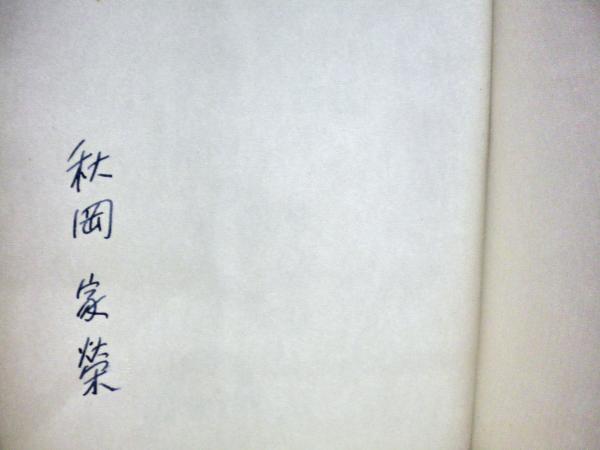 秋岡家榮